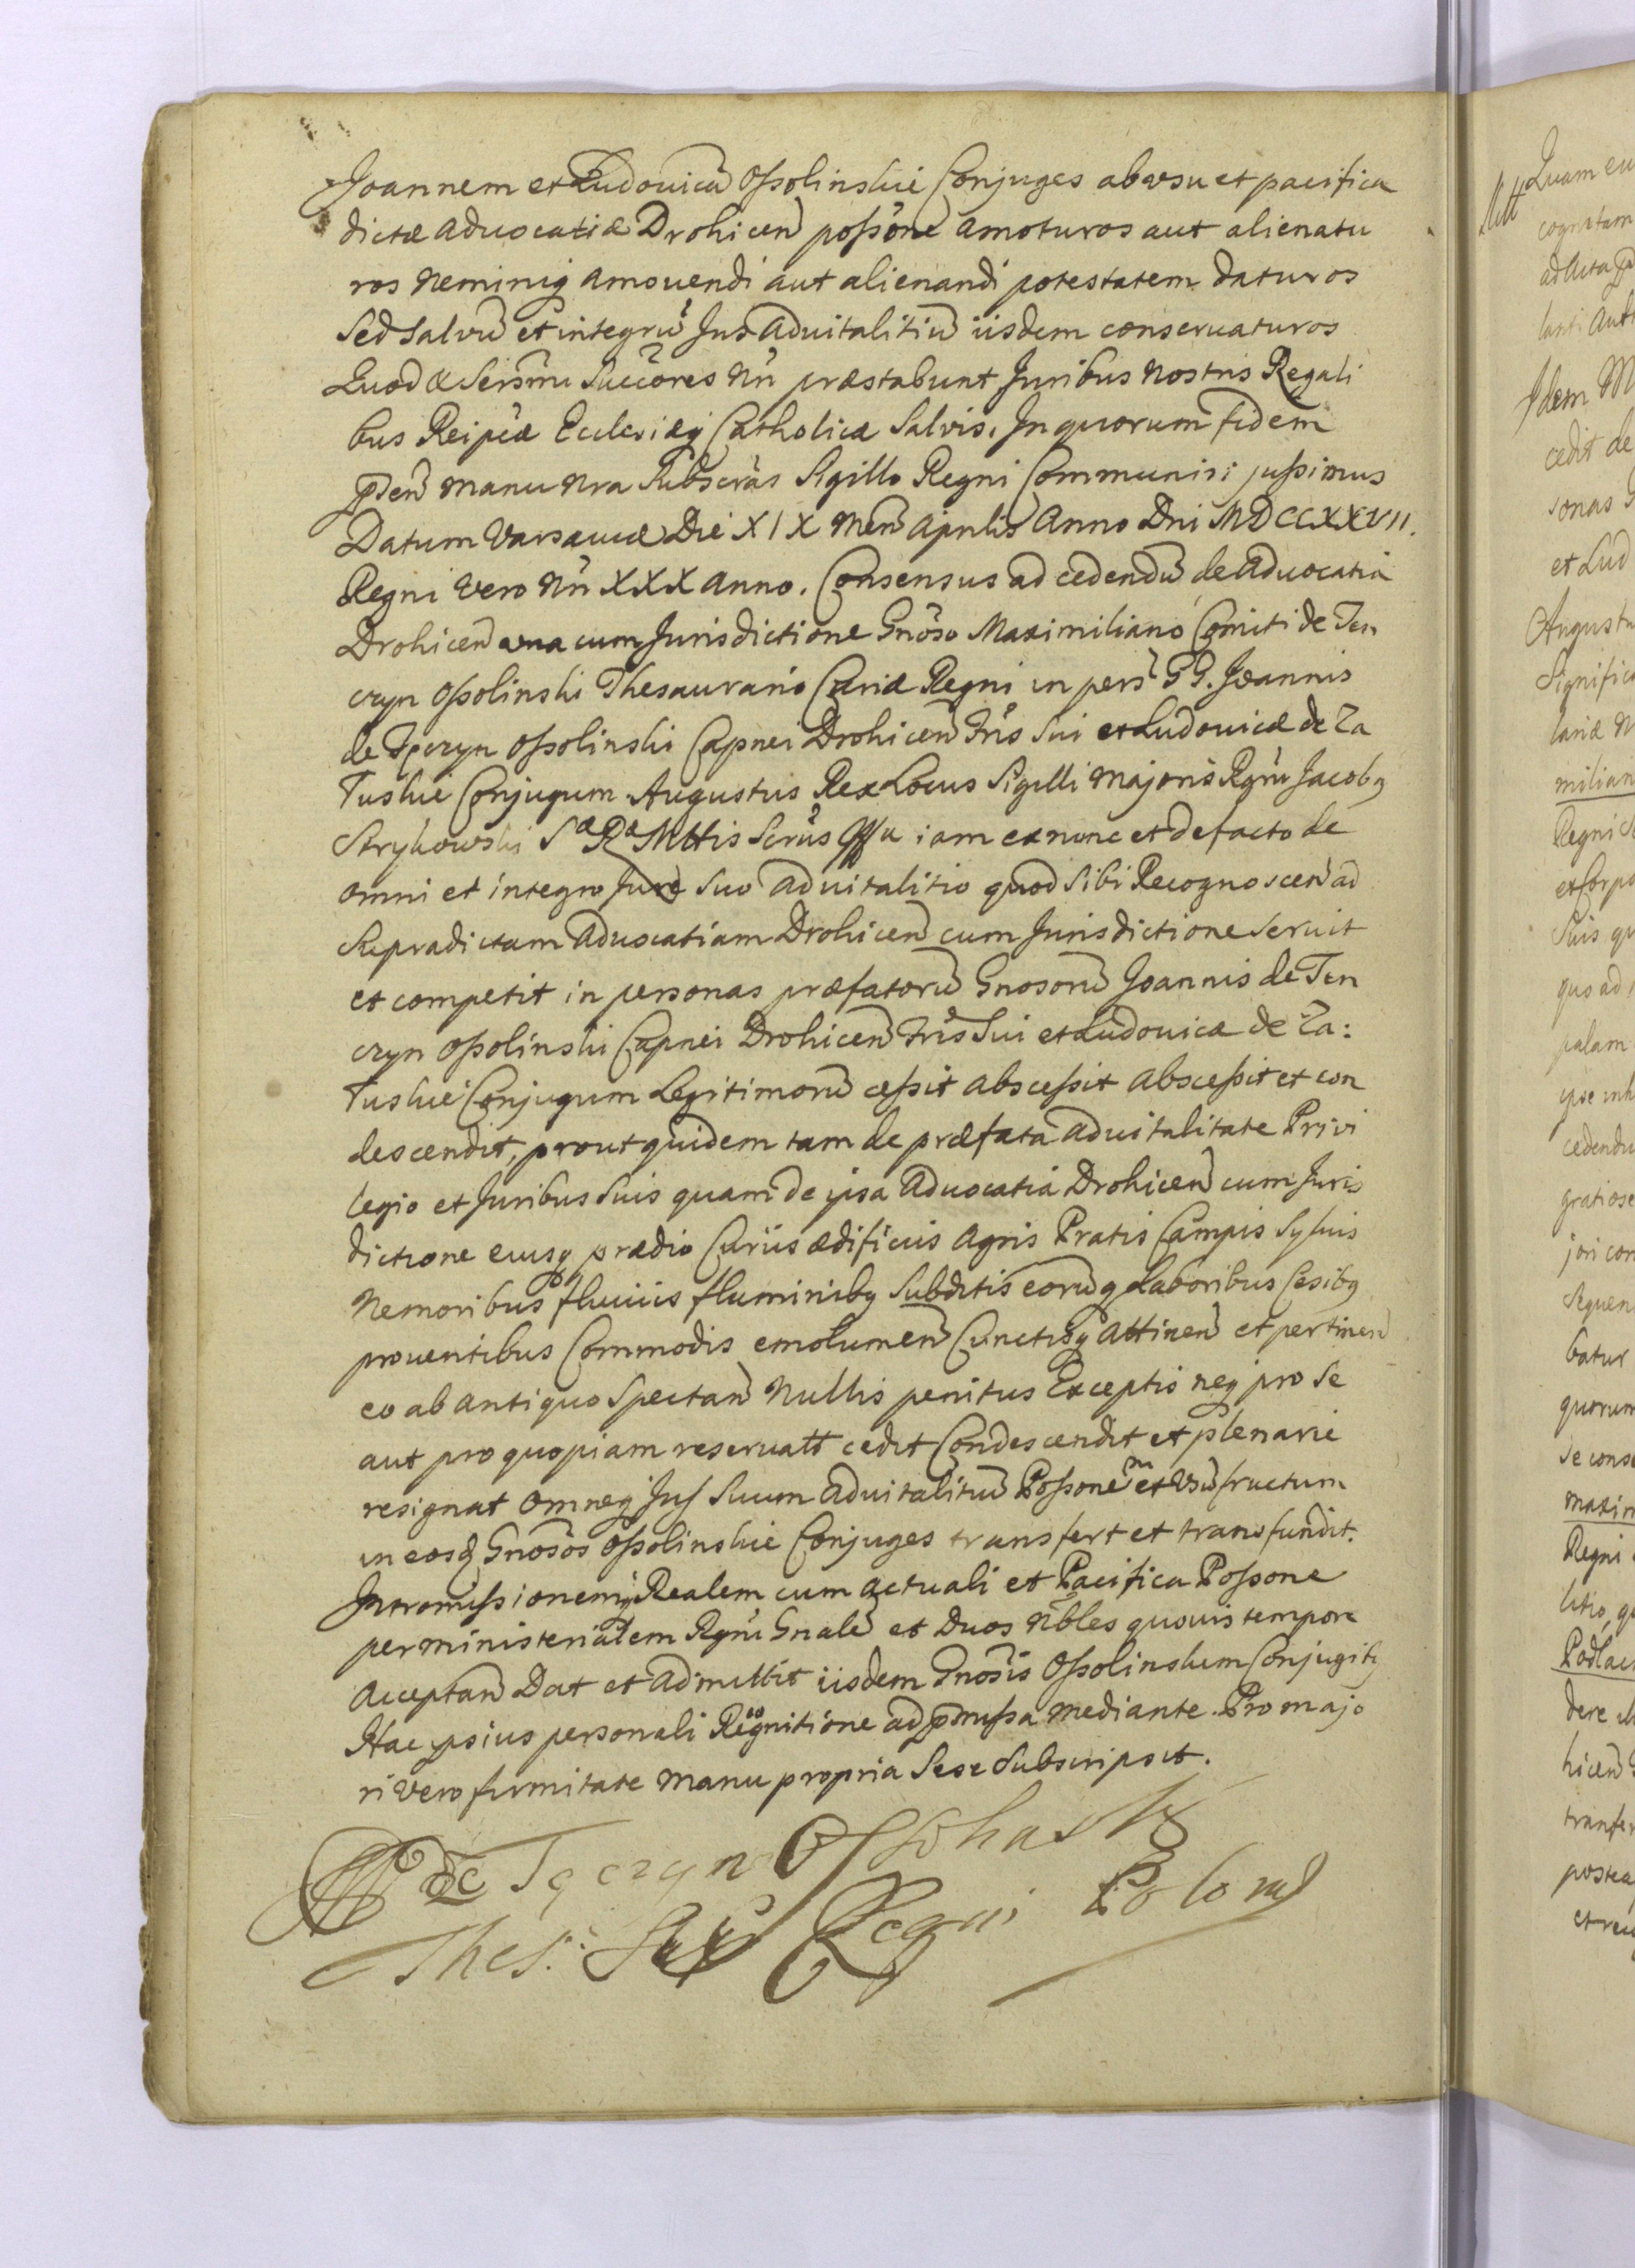 Joannem et Ludovicā Ossolinskie Conjuges ab usu et pacifica
dictæ Advocatiæ Drohicen̄ possōne amoturos aut alienatu
ros Neminiq̨ Amovendi aut alienandi potestatem daturos
Sed Salvū et integrū Jus Advitalitiū iisdem conservaturos
Quod & Sersm̄i Succōres Nr̄i præstabunt Juribus Nostris Regali
bus Reipcæ Ecclesiæq̨ Catholicæ Salvis. In quorum fidem
p̄sen̄ manu Nra Subscrās Sigillo Regni Communiri jussimus
Datum Varsaviæ Die XIX Men̄ Aprilis Anno Dni MDCCXXVII.
Regni vero Nr̄i XXX Anno. Consensus ad cedendū de Advocatia
Drohicen̄ una cum Jurisdictione Gnōso Maximiliano Comiti de Ten
czyn Ossolinski Thesaurario Curiæ Regni in pers̄ GG. Joannis
de Tęczyn Ossolinski Capnei Drohicen̄ Frīs Sui et Ludovicæ de Za
łuskie Conjugum Augustus Rex Locus Sigilli Majoris Rgn̄i Jacobq̨
Strykowski Sæ Ræ Mttis Scrūs iam ex nunc et de facto de
omni et integro Jure Suo Advitalitio quod Sibi Recognoscen̄ ad
Supradictam Advocatiam Drohicen̄ cum Jurisdictione Servit
et competit in personas præfatorū Gnosorū Joannis de Ten
czyn Ossolinski Capnei Drohicen̄ Frīs Sui et Ludovicæ de Za:
łuskie Conjugum Legitimorū cessit abscessit Abscessit et con
descendit, prout quidem tam de præfata advitalitate Privi
legio et Juribus Suis quam de ipsa Advocatia Drohicen̄ cum Juris
dictione eiusq̨ prædio Curiis ædificiis Agris Pratis Campis Sylvis
Nemoribus fluviis fluminibq̨ Subditis eorūq̨ Laboribus Cēsibq̨
proventibus Commodis emolumen̄ Cunctisq̨ Attinen̄ et pertinen̄
eo ab antiquo Spectan̄ Nullis penitus Exceptis neq̨ pro Se
aut pro quopiam reservatt cedit Condescendit et plenarie
resignat omneq̨ Jus Suum Advitalitiū Possonem et Usūfructum
in eosd̄ Gnosōs Ossolinskie Conjuges transfert et transfundit.
Intromissionemq̨ Realem cum actuali et Pacifica Possone
per ministerialem Rgn̄i Gnalē et Duos Nb̄les quovis tempore
Acceptan̄ Dat et Admittit iisdem Gnosīs Ossolinskim Conjugibq̨
Hac ipsius personali Recognitione ad p̄missa mediante. Pro majo
ri vero firmitate manu propria Sese Subscripsit.
de Tęczyn Ossolinsky
Thes: Regni Polon̄